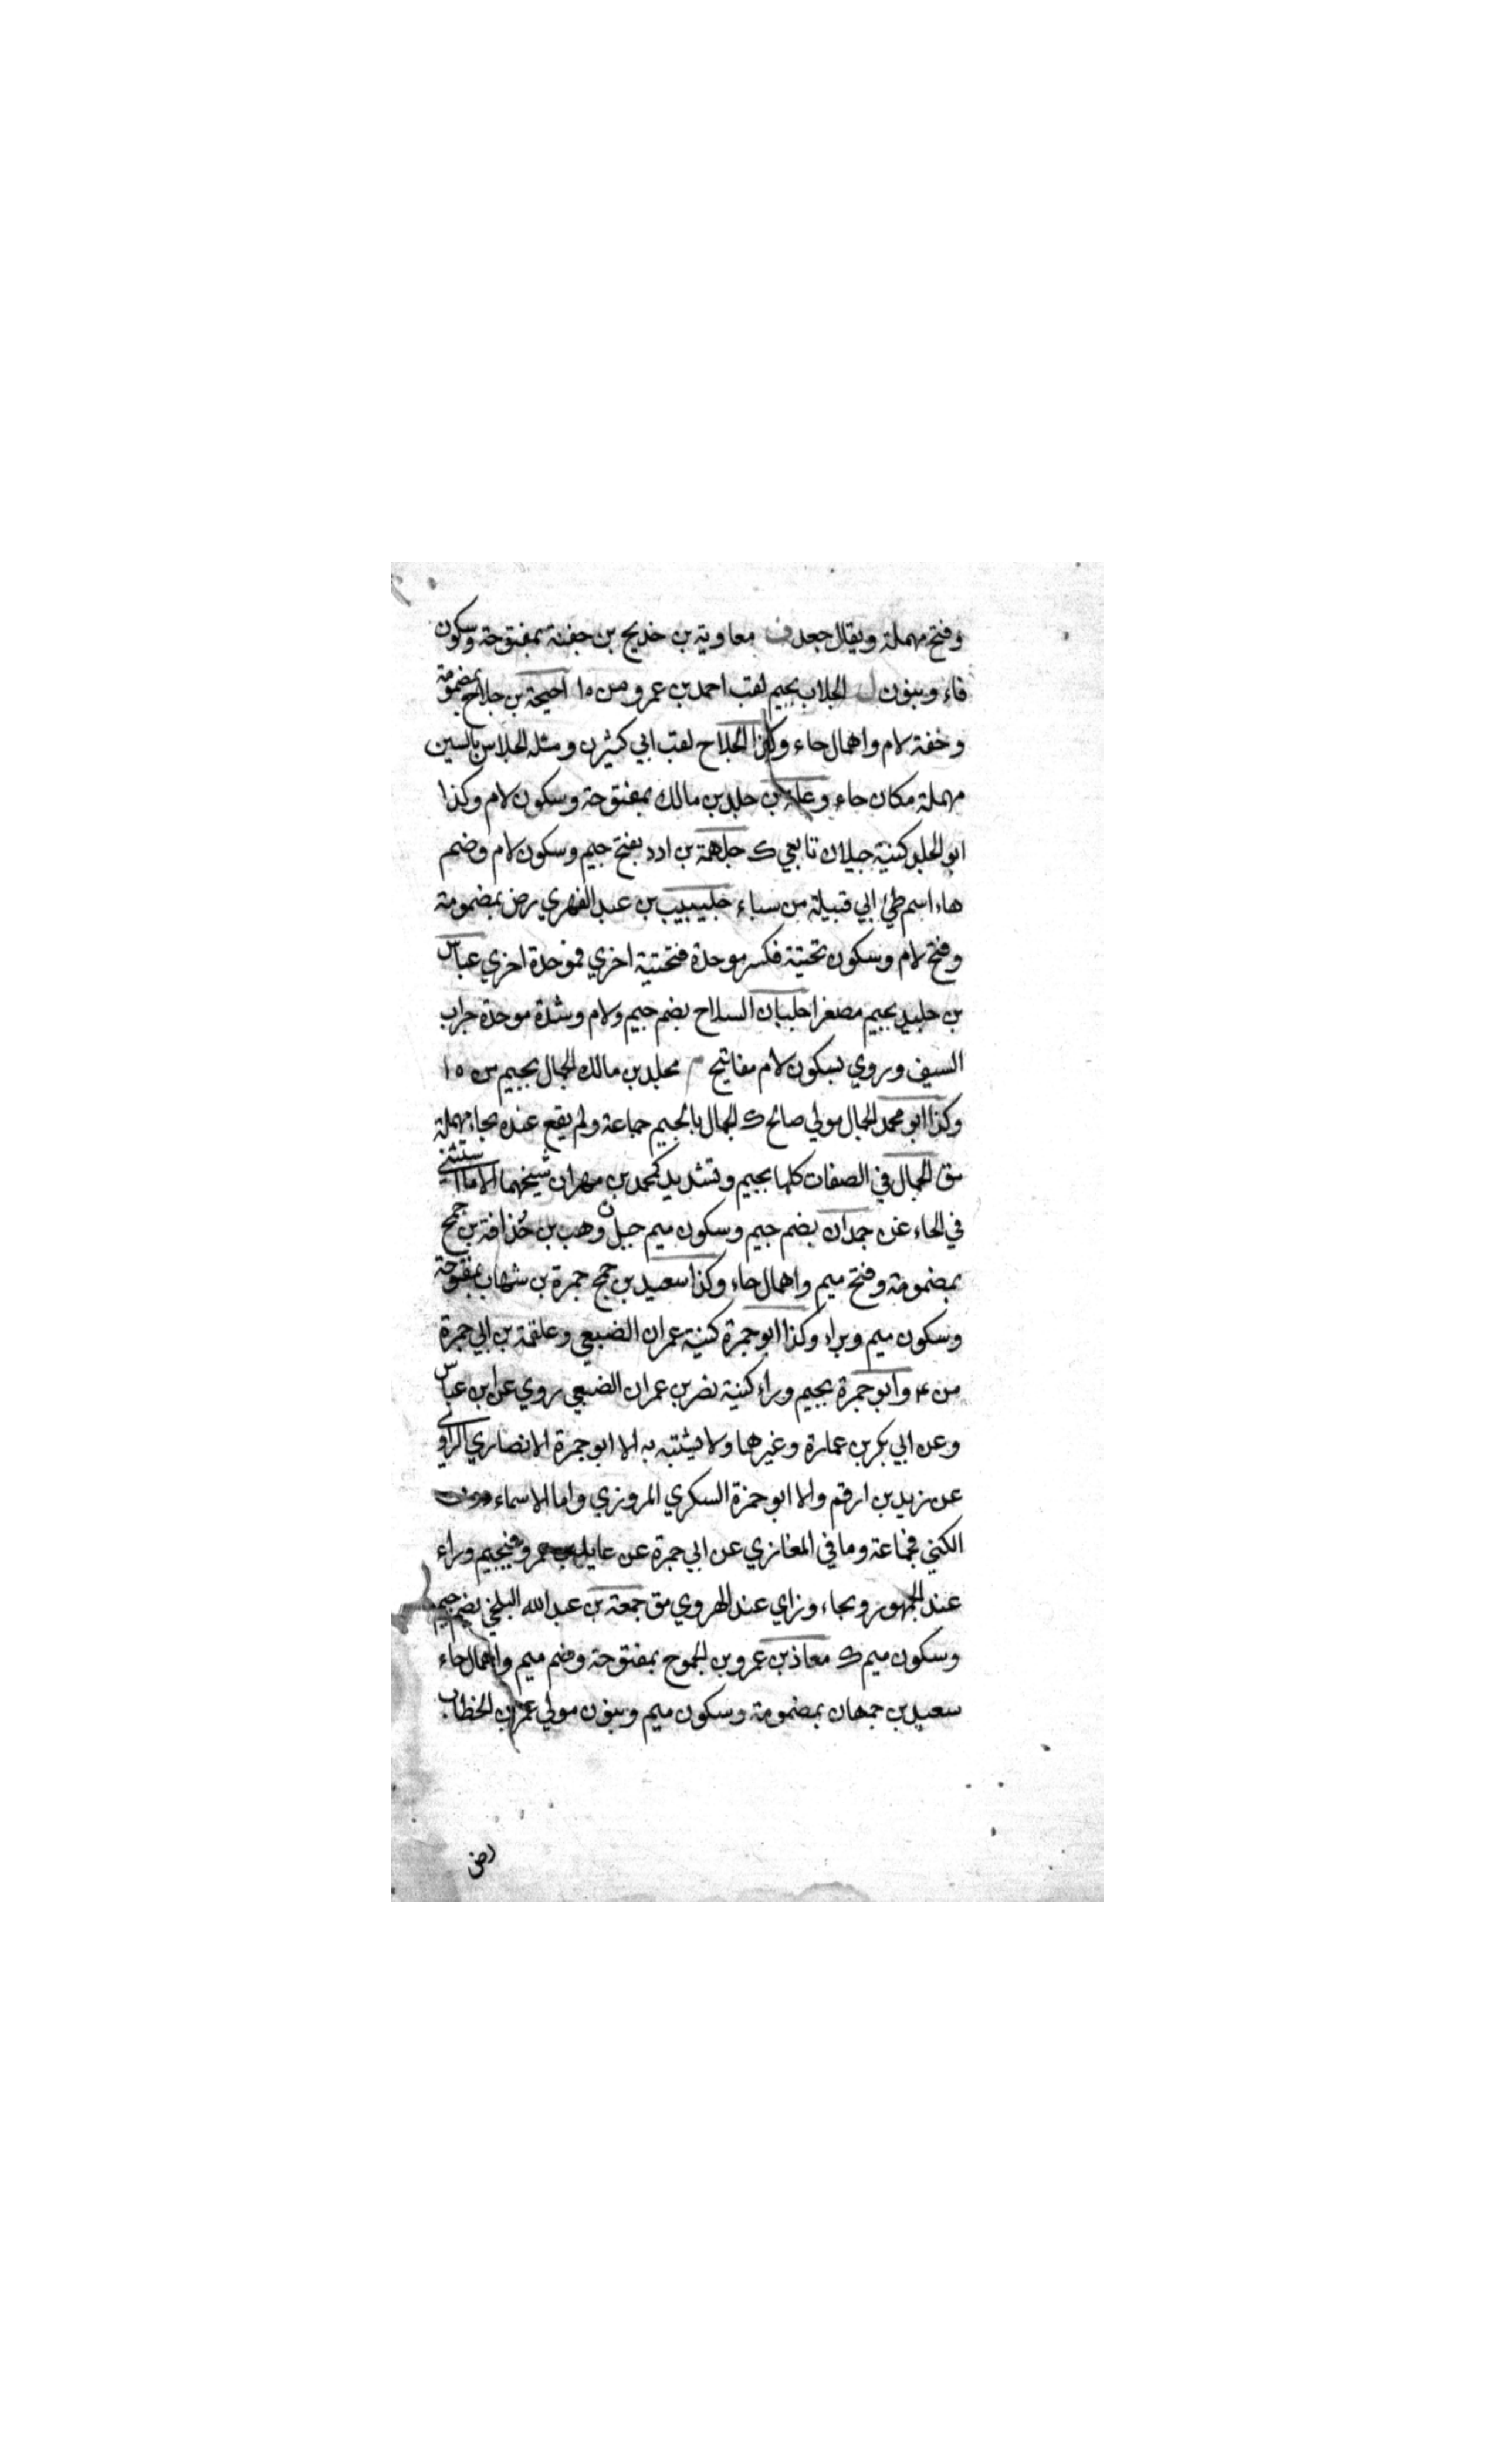 وفتح مهملة ويقال جعد ف معاوية بن خديج بن جفنة بمفتوحة وسكون
فاء وبنون ل الجلاب بجيم لقب احمد بن عمرو من ١٥ احيحة بن جلاح بمضمومة
وخفة لام واهمال حاء وكذا الجلاح لقب ابي كثير ن ومثله الجلاس بالسين
مهملة مكان حاء وعلة بن جلد بن مالك بمفتوحة وسكون لام وكذا
ابو الجلد كنية جيلان تابعي ك جلهمة بن ادد بفتح جيم وسكون لام وضم
هاء اسم طيء ابي قبيلة من سباء جليبيب بن عبد الفهري رض بمضمومة
وفتح لام وسكون تحتية فكسر موحدة فتحتية اخري فموحدة اخري عباس
بن جليد بجيم مصغرا جلبان السلاح بضم جيم ولام وشدة موحدة جراب
السيف وروي بسكون لام مفاتيح م مخلد بن مالك الجمال بجيم من ١٥
وكذا ابو محمد الجمال مولي صالح ك الجمال بالجيم جماعة ولم يقع عنده بحاء مهملة
مق الجمال في الصفات كلها بجيم وتشديد كمحمد بن مهران شيخهما الا ما استثني
في الحاء عن جمدان بضم جيم وسكون ميم جبل ن وهب بن حذافة بن جمح
بمضمومة وفتح ميم واهمال حاء وكذا سعيد بن جمح جمرة بن شهاب بمفتوحة
وسكون ميم وبراء وكذا ابو جمرة كنية عمران الضبعي وعلقمة بن ابي جمرة
من ٤ وابو جمرة بجيم وراء كنية نصر بن عمران الضبعي روي عن ابن عباس
وعن ابي بكر بن عمارة وغيرها ولا يشتبه به الا ابو حمزة الانصاري الراوي
عن زيد بن ارقم والا ابو حمزة السكري المروزي واما الاسماء دون
الكني فجماعة وما في المغازي عن ابي جمرة عن عايذ بن عمرو فبجيم وراء
عند الجمهور وبحاء وزاي عند الهروي مق جمعة بن عبد الله البلخي بضم جيم
وسكون ميم ك معاذ بن عمرو بن الجموح بمفتوحة وضم ميم واهمال حاء
سعيد بن جمهان بمضمومة وسكون ميم وبنون مولي عمر بن الخطاب
رض